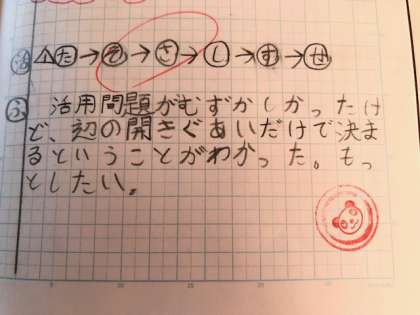 活 △た→え→さ→し→む→せ
ふ 活用問題がむずかしかったけ
ど、辺の開きぐあいだけで決ま
るということがわかった。もっ
としたい。